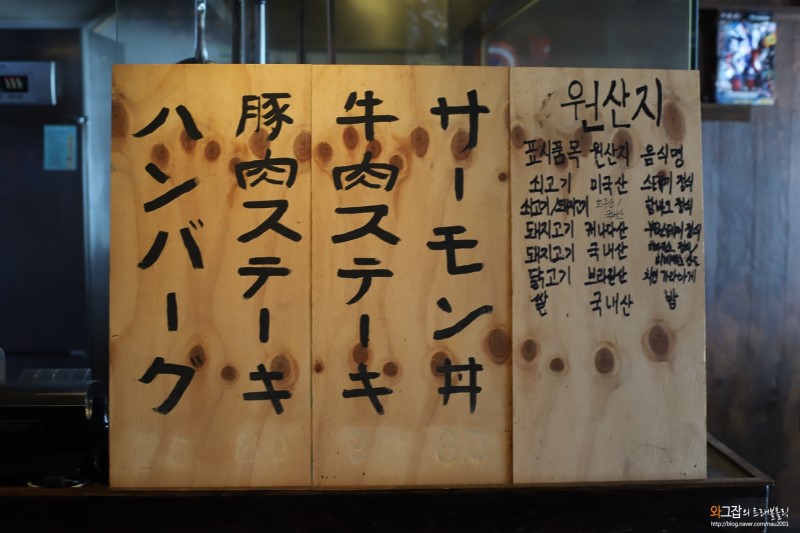 サーモン丼
牛肉ステーキ
豚肉ステーキ
ハンバーグ
원산지
표시품목 원산지 음식명
쇠고기 미국산 스테이크 정식
쇠고기/돼지고기 함바그 정식
돼지고기 캐나다산
돼지고기 국내산
닭고기 브라질산 치킨가라아게
쌀 국내산 밥
와그잡의 트래블홀릭
http://blog.naver.com/nau2001